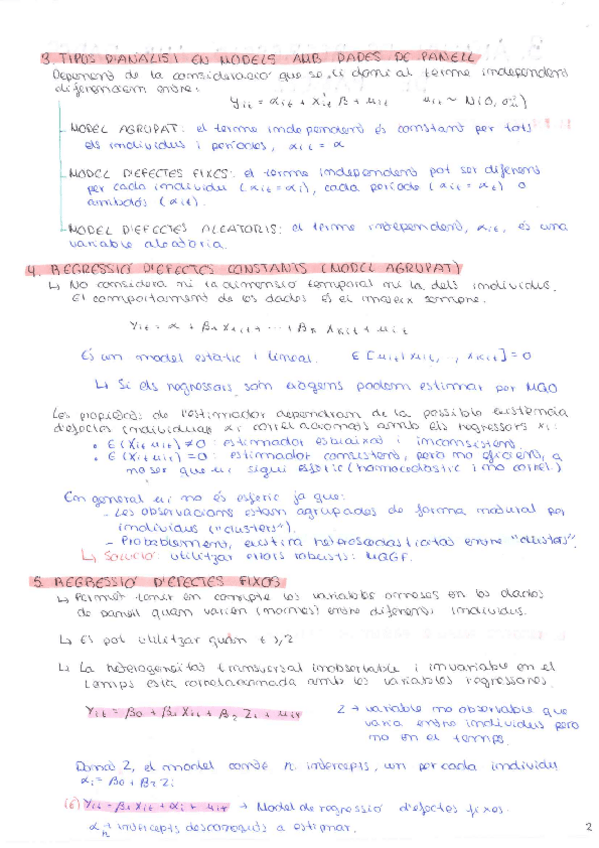 3. TIPUS D'ANÀLISI EN MODELS AMB DADES DE PANELL
Depenent de la consideració que se li doni al terme independent
diferenciem entre:
Yit = αit + X'it β + uit    uit ~ N(0, σ²u)
- MODEL AGRUPAT: el terme independent és constant per tots
els individus i períodes, αit = α
- MODEL D'EFECTES FIXES: el terme independent pot ser diferent
per cada individu (αit = αi), cada període (αit = αt) o
ambdós (αit).
- MODEL D'EFECTES ALEATORIS: el terme independent, αit, és una
variable aleatòria.
4. REGRESSIÓ D'EFECTES CONSTANTS (MODEL AGRUPAT)
↳ No considera ni la dimensió temporal ni la dels individus.
El comportament de les dades és el mateix sempre.
Yit = α + β1 X1it + ... + βk Xkit + uit
És un model estàtic i lineal.    E[uit | X1it, ..., Xkit] = 0
↳ Si els regressors son exògens podem estimar per MQO
Les propietats de l'estimador dependran de la possible existència
d'efectes individuals αi correlacionats amb els regressors xi:
• E(Xit uit) ≠ 0: estimador esbiaixat i inconsistent.
• E(Xit uit) = 0: estimador consistent, però no eficient, a
no ser que ui sigui esfèric (homocedàstic i no correl.)
En general ui no és esfèric ja que:
- Les observacions estan agrupades de forma natural per
individus ("clusters").
- Probablement, existirà heteroscedasticitat entre "clusters".
↳ Solució: utilitzar errors robusts: MQGF.
5. REGRESSIÓ D'EFECTES FIXOS
↳ Permet tenir en compte les variables omeses en les dades
de panell quan varien (només) entre diferents individus.
↳ Es pot utilitzar quan t ≥ 2
↳ La heterogeneïtat transversal inobservable i invariable en el
temps està correlacionada amb les variables regressores.
Yit = β0 + β1 Xit + β2 Zi + uit    Z → variable no observable que
varia entre individus però
no en el temps.
Donat Z, el model conté n intercepts, un per cada individu
αi = β0 + β2 Zi
Yit = β1 Xit + αi + uit → Model de regressió d'efectes fixos.
αi → n intercepts desconeguts a estimar.
2